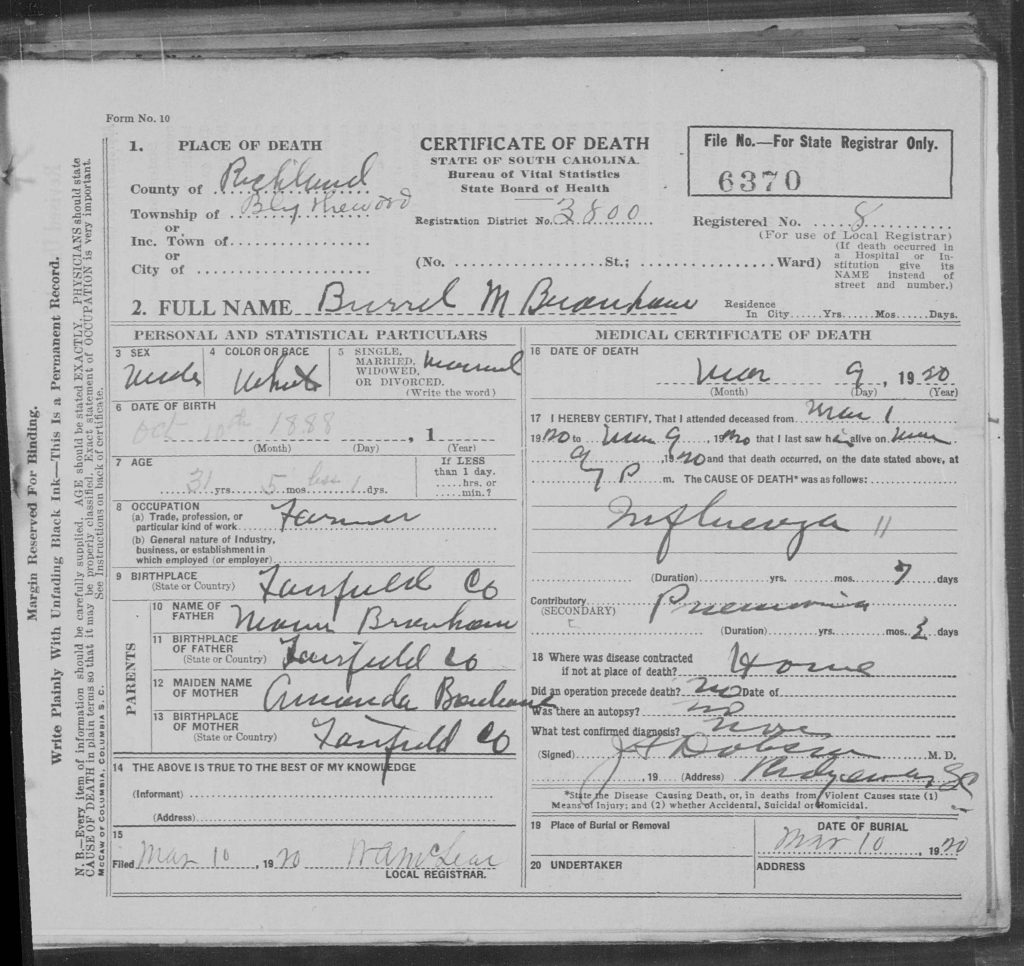 Form No. 10
1. PLACE OF DEATH
County of Richland
Township of Blythewood
or
Inc. Town of
or
City of
CERTIFICATE OF DEATH
STATE OF SOUTH CAROLINA.
Bureau of Vital Statistics
State Board of Health
Registration District No. 3800
(No. St.; Ward)
File No.—For State Registrar Only.
6370
Registered No. 8
(For use of Local Registrar)
(If death occurred in
a Hospital or In-
stitution give its
NAME instead of
street and number.)
2. FULL NAME Burrel M Branham
Residence
In City Yrs. Mos. Days.
PERSONAL AND STATISTICAL PARTICULARS
3 SEX
4 COLOR OR RACE
White
5 SINGLE,
MARRIED, Married
WIDOWED,
OR DIVORCED.
(Write the word)
6 DATE OF BIRTH
Oct 10th 1888 , 1
(Month) (Day) (Year)
7 AGE
31 yrs. 5 mos. less 1 dys.
If LESS
than 1 day.
hrs. or
min.?
8 OCCUPATION
(a) Trade, profession, or
particular kind of work Farmer
(b) General nature of Industry,
business, or establishment in
which employed (or employer)
9 BIRTHPLACE
(State or Country) Fairfield Co
PARENTS
10 NAME OF
FATHER Branham
11 BIRTHPLACE
OF FATHER
(State or Country) Fairfield Co
12 MAIDEN NAME
OF MOTHER Amanda Branham
13 BIRTHPLACE
OF MOTHER
(State or Country) Fairfield Co
14 THE ABOVE IS TRUE TO THE BEST OF MY KNOWLEDGE
(Informant)
(Address)
15
Filed Mar 10, 1920 McLean
LOCAL REGISTRAR.
MEDICAL CERTIFICATE OF DEATH
16 DATE OF DEATH
Mar 9, 1920
(Month) (Day) (Year)
17 I HEREBY CERTIFY, That I attended deceased from Mar 1
1920 to Mar 9, 1920 that I last saw him alive on Mar
9, 1920 and that death occurred, on the date stated above, at
9 P m. The CAUSE OF DEATH* was as follows:
Influenza 11
(Duration) yrs. mos. 7 days
Contributory Pneumonia
(SECONDARY)
(Duration) yrs. mos. 3 days
18 Where was disease contracted
if not at place of death? Home
Did an operation precede death? no Date of
Was there an autopsy? no
What test confirmed diagnosis? none
(Signed) Dobson M. D.
, 19 (Address) Ridgeway, SC
*State the Disease Causing Death, or, in deaths from Violent Causes state (1)
Means of Injury; and (2) whether Accidental, Suicidal or Homicidal.
19 Place of Burial or Removal
DATE OF BURIAL
Mar 10, 1920
20 UNDERTAKER
ADDRESS
Margin Reserved For Binding.
Write Plainly With Unfading Black Ink—This Is a Permanent Record.
N. B.—Every item of information should be carefully supplied. AGE should be stated EXACTLY. PHYSICIANS should state
CAUSE OF DEATH in plain terms so that it may be properly classified. Exact statement of OCCUPATION is very important.
See Instructions on back of certificate.
McCAW OF COLUMBIA, COLUMBIA S. C.